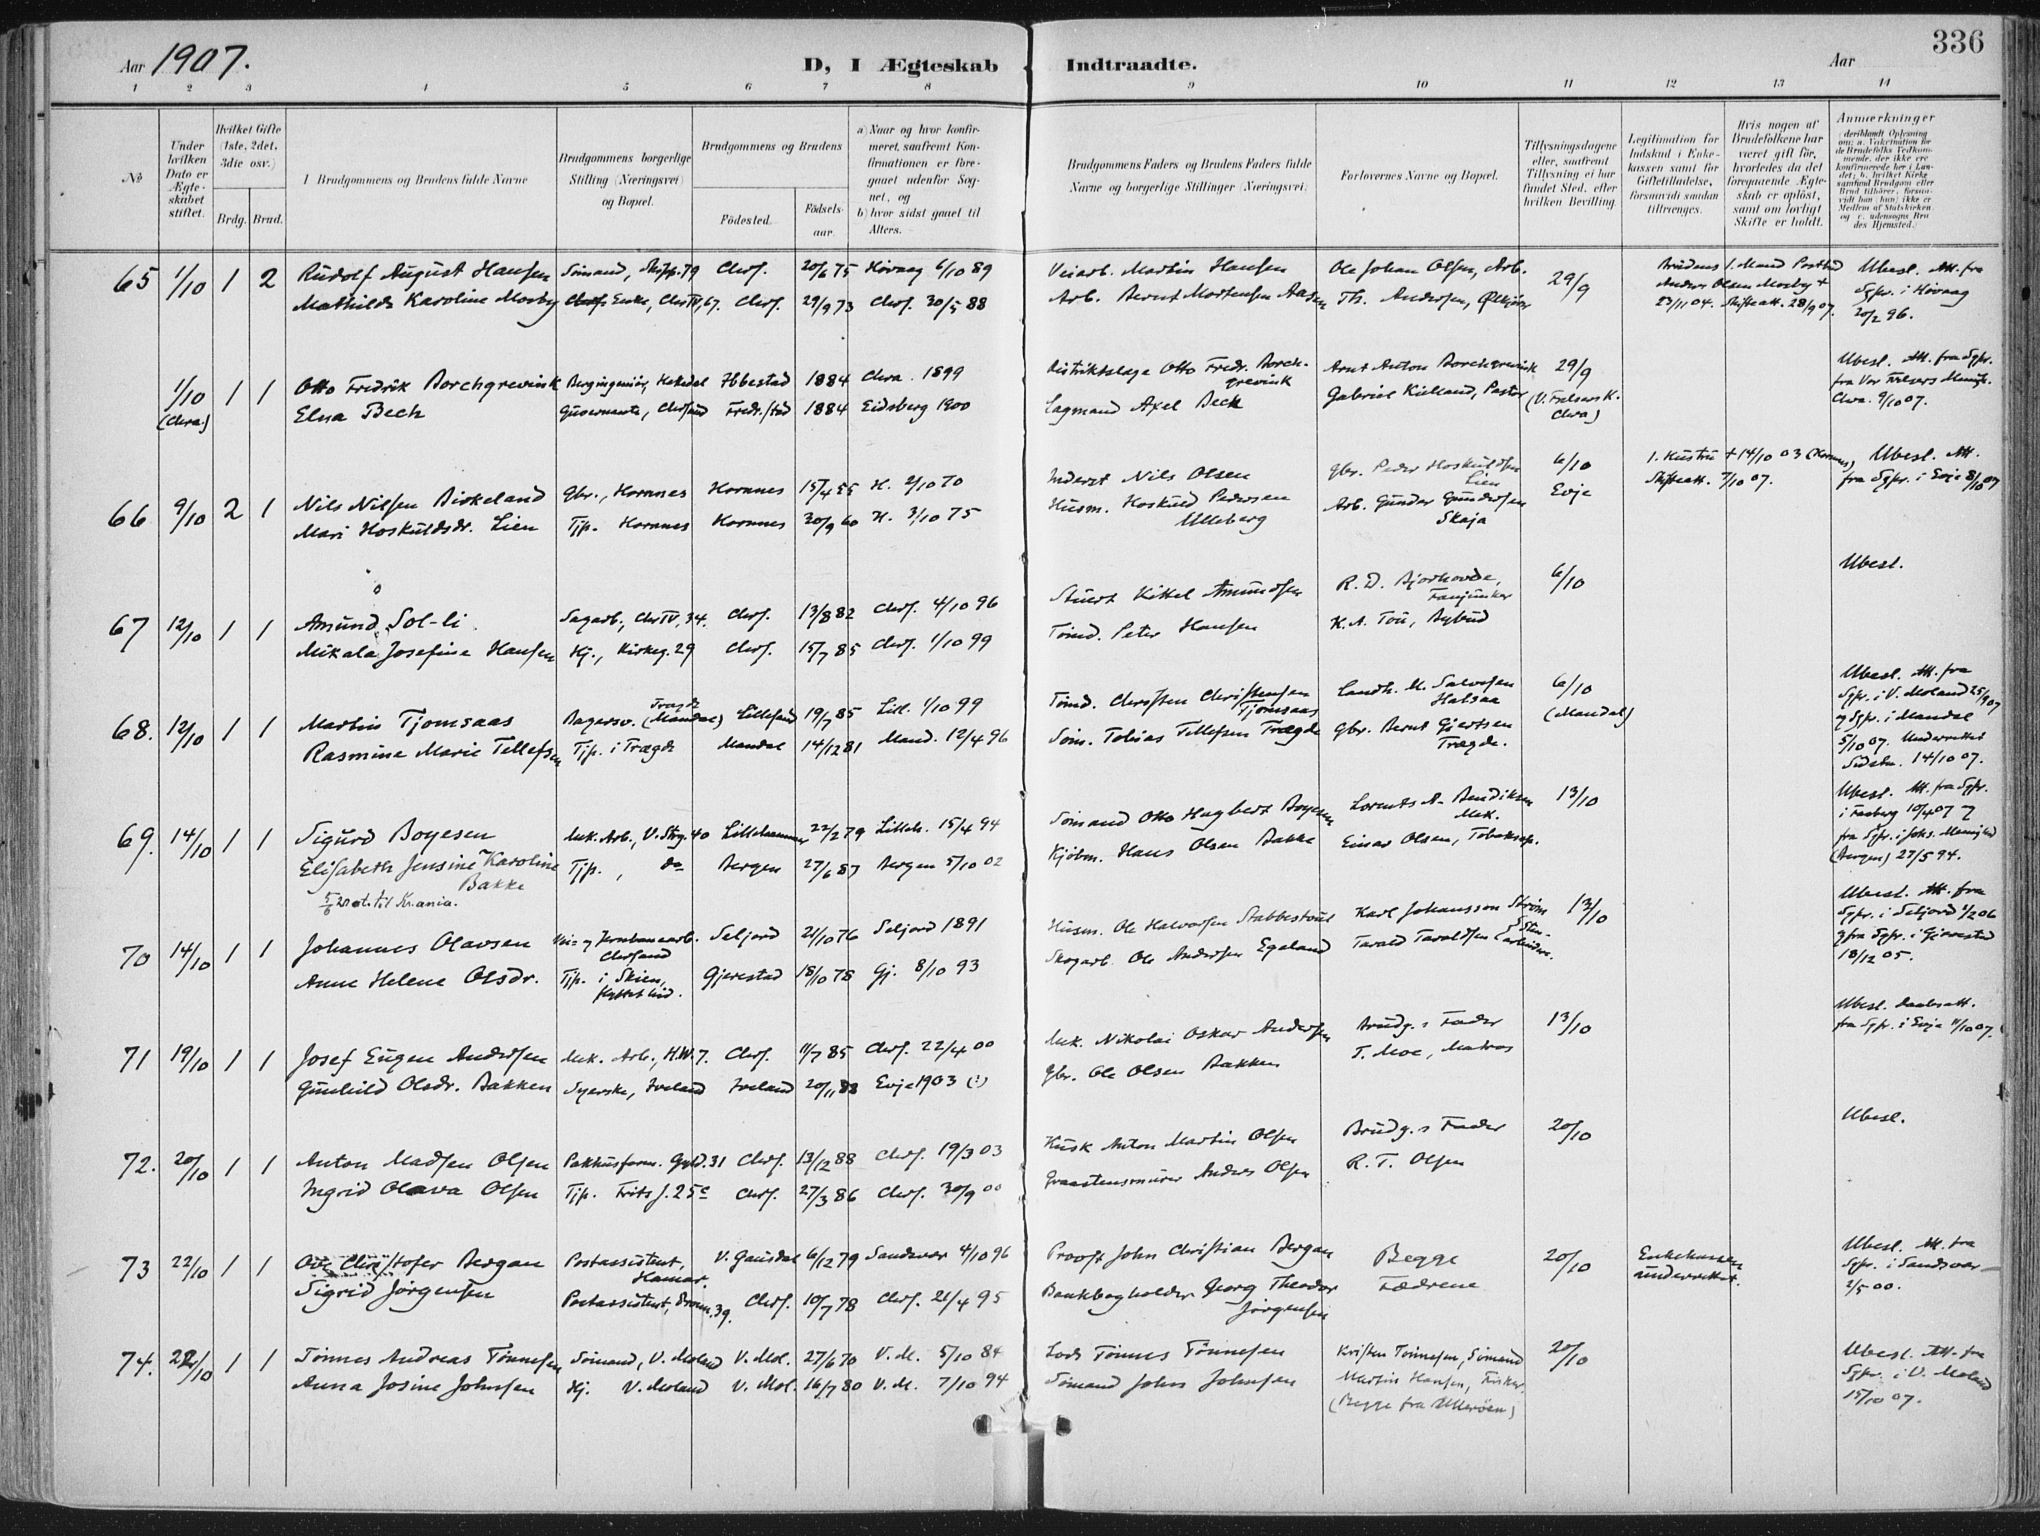 336
Aar 1907.
D, I Ægteskab Indtraadte.
Aar
1 2 3 4 5 6 7 8 9 10 11 12 13 14
No
Under hvilken Dato er Ægteskabet stiftet.
Hvilket Gifte (1ste, 2det, 3die osv.)
Brdg. Brud.
Brudgommens og Brudens fulde Navne
Brudgommens borgerlige Stilling (Næringsvei) og Bopæl.
Brudgommens og Brudens
Födested.
Födselsaar.
a) Naar og hvor konfirmeret, saafremt Konfirmationen er foregaaet udenfor Sognet, og
b) hvor sidst gaaet til Alters.
Brudgommens Faders og Brudens Faders fulde Navne og borgerlige Stillinger (Næringsvei)
Forlovernes Navne og Bopæl.
Tillysningsdagene eller, saafremt Tillysning ei har fundet Sted, efter hvilken Bevilling.
Legitimation for Indskud i Enkekassen samt for Giftetilladelse, forsaavidt saadan tiltrænges.
Hvis nogen af Brudefolkene har været gift för, hvorledes da det foregaaende Ægteskab er oplöst, samt om lovligt Skifte er holdt.
Anmærkninger
65 1/10 1 2 Rudolf August Hansen Sömand, 79 Chrs. 20/6 75 Hövaag 6/10 89 Veiarb. Martin Hansen Ole Johan Olsen, Arb. 29/9 Brudens 1. Mand Postbud Ubesl. Att. fra
Mathilde Karoline Mosby Enke, Chr IV, 67. Chrs. 29/9 73 Chrs. 30/5 88 Arb. Bernt Mortensen Aasen Th. Andersen, Anders Olsen Mosby + Sgpr. i Hövaag
23/11 04. Skifteatt. 28/9 07. 20/2 96.
1/10 1 1 Otto Fredrik Borchgrevink Bergingeniör, 1884 Chra. 1899 Distriktslæge Otto Fredr. Borchgrevink Arnt Anton Borchgrevink 29/9 Ubesl. Att. fra Sgpr.
(Chra.) Elna Beck Guvernante, Chrsand Fredr.stad 1884 Eidsberg 1900 Lagmand Axel Beck Gabriel Kielland, Pastor (V. Frelsers K. Chra) fra Vor Frelsers Menigh. Chra. 9/10 07.
66 9/10 2 1 Nils Nilsen Birkeland Gbr., Hornnes Hornnes 15/4 55 H. 2/10 70 Inderst Nils Olsen Gbr. Peder Hoskuldsen Lien 6/10 1. Hustru + 14/10 03 (Hornnes) Ubesl. Att.
Mari Hoskuldsdr. Lien Tjp. Hornnes Hornnes 30/9 60 H. 3/10 75 Husm. Hoskuld Pedersen Ulleberg Arb. Gunder Gundersen Skaja Evje Skifteatt. 7/10 07. fra Sgpr. i Evje 8/10 07
67 12/10 1 1 Amund Sol-li Sagarb., Chr IV, 34. Chrs. 13/8 82 Chrs. 4/10 96 Kittel Amundsen R. D. Bjorhovde, Fanjunker 6/10 Ubesl.
Mikala Josefine Hansen Hj., Kirkeg. 29 Chrs. 15/7 85 Chrs. 1/10 99 Tömd. Peter Hansen K. A. Tou, Bybud
68. 12/10 1 1 Martin Tjomsaas Bagersv. (Mandal) Lillesand 19/7 85 Lill. 1/10 99 Tömd. Christen Christensen Tjomsaas Landh. M. Salvesen Hatsaa 6/10 Ubesl. Att. fra
Rasmine Marie Tellefsen Tjp. i Trægde Mandal 14/12 81 Mand. 12/4 96 Söm. Tobias Tellefsen Trægde Gbr. Bernt Gjertsen Trægde. (Mandal) Sgpr. i V. Moland 25/9 07
og Sgpr. i Mandal
5/10 07. Underrettet
14/10 07.
69. 14/10 1 1 Sigurd Boyesen Mek. Arb., V. Strg. 40 Lillehammer 22/2 79 Lilleh. 15/4 94 Sömand Otto Hagbert Boyesen Lorents A. Bendiksen Mek. 13/10 Ubesl. Att. fra Sgpr.
Elisabeth Jensine Karoline Bakke Tjp., do Bergen 27/6 87 Bergen 5/10 02 Kjöbm. Hans Olsen Bakke Einar Olsen, Tobakssp. i Faaberg 10/4 07 &
fra Sgpr. i Johs. Menighed
(Bergen) 27/5 94.
til Kr.ania.
70 14/10 1 1 Johannes Olavsen Vei- og Jernbanearb. Chrsand Seljord 21/10 76 Seljord 1891 Husm. Ole Halvorsen Stabbestoul Karl Johansson Ström 13/10 Ubesl. Att. fra
Anne Helene Olsdr. Tjp. i Skien, Gjerestad 18/10 78 Gj. 8/10 93 Skogarb. Ole Andersen Egeland Tarald Taraldsen Sgpr. i Seljord 1/2 06
& fra Sgpr. i Gjerestad
18/12 05.
71 19/10 1 1 Josef Eugen Andersen Mek. Arb., H.W. 7. Chrs. 11/7 85 Chrs. 22/4 00 Mek. Nikolai Oskar Andersen Brudg.s Fader 13/10 Ubesl. Daabsatt.
Gunhild Olsdr. Bakken Syerske, Iveland Iveland 20/11 88 Evje 1903 (?) Gbr. Ole Olsen Bakken T. Moe, Matros fra Sgpr. i Evje 11/10 07.
72. 20/10 1 1 Anton Madsen Olsen Pakhusform. Gyld. 31 Chrs. 13/12 88 Chrs. 19/3 03 Kusk Anton Martin Olsen Brudg.s Fader 20/10 Ubesl.
Ingrid Olava Olsen Tjp. Frits J. 25c Chrs. 27/3 86 Chrs. 30/9 00 Graastensmurer Anders Olsen R. T. Olsen
73 22/10 1 1 Ove Christofer Bergan Postassistent, Hamar. V. Gausdal 6/12 79 Sandsvær 4/10 96 Provst John Christian Bergan Begge 20/10 Enkekassen Ubesl. Att. fra
Sigrid Jörgensen Postassistent, Dronn. 39. Chrs. 10/7 78 Chrs. 21/4 95 Bankbogholder Georg Theodor Jörgensen Fædrene underrettet. Sgpr. i Sandsvær
2/5 00.
74. 22/10 1 1 Tönnes Andreas Tönnesen Sömand, V. Moland V. Mol. 27/6 70 V. M. 5/10 84 Lods Tönnes Tönnesen Kristen Tönnesen, Sömand 20/10 Ubesl. Att. fra
Anna Josine Johnsen Hj. V. Moland V. Mol. 16/7 80 V. M. 7/10 94 Sömand John Johnsen Martin Hansen, Fisker. Sgpr. i V. Moland
(Begge fra Ulleröen) 15/10 07.